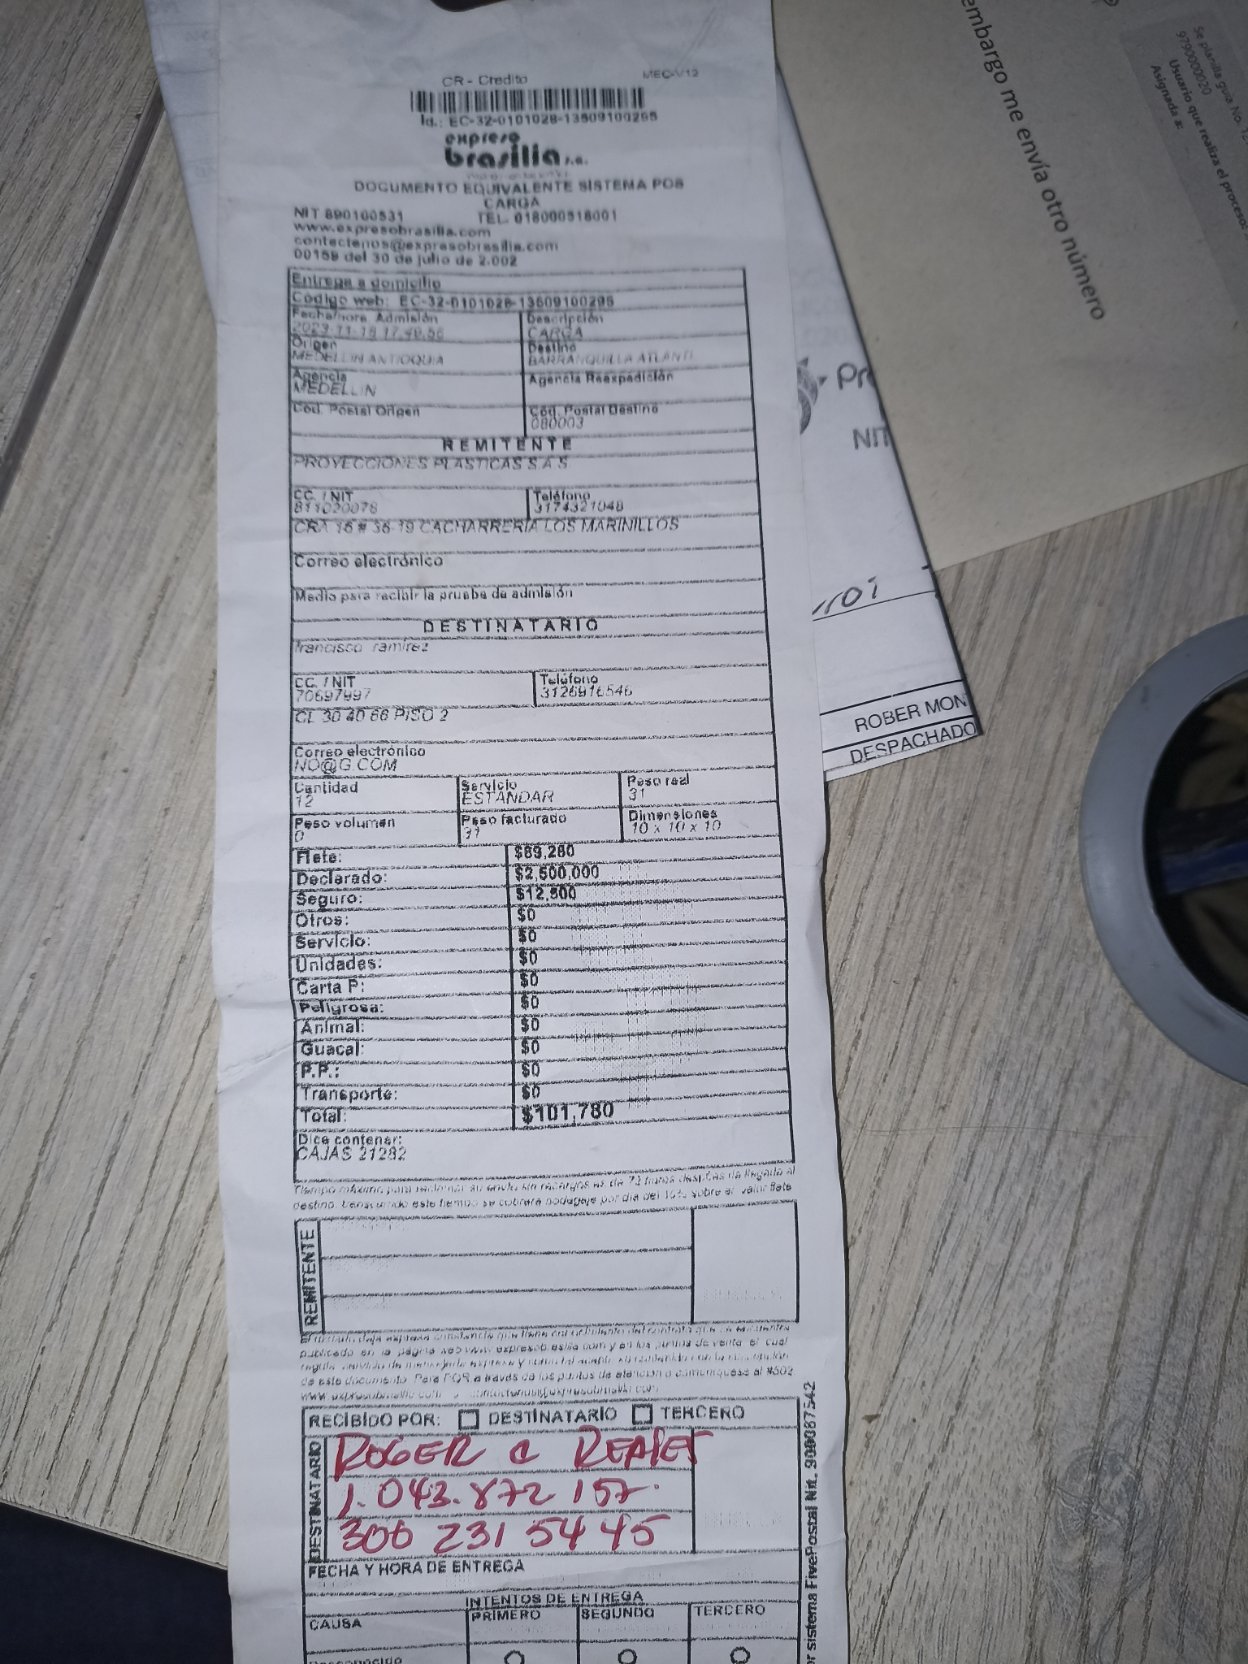 CR - Credito MEC-V12
Id.: EC-32-0101028-13509100295
expreso
brasilia s.a.
DOCUMENTO EQUIVALENTE SISTEMA POS
CARGA
NIT 890100531 TEL. 018000518001
www.expresobrasilia.com
contactenos@expresobrasilia.com
00159 del 30 de julio de 2.002
Entrega a domicilio
Código web: EC-32-0101028-13509100295
Fecha/hora Admisión Descripción
CARGA
Origen Destino
MEDELLIN ANTIOQUIA BARRANQUILLA ATLANTI
Agencia Agencia Reexpedición
MEDELLIN
Cód. Postal Origen Cód. Postal Destino
080003
REMITENTE
PROYECCIONES PLASTICAS S.A.S.
CC. / NIT Teléfono
811020078 3174321048
CRA 16 # 36 19 CACHARRERIA LOS MARINILLOS
Correo electrónico
Medio para recibir la prueba de admisión
DESTINATARIO
francisco ramirez
CC. / NIT Teléfono
70697997 3126916546
CL 30 40 66 PISO 2
Correo electrónico
NO@G.COM
Cantidad Servicio Peso real
12 ESTANDAR 31
Peso volumen Peso facturado Dimensiones
0 31 10 x 10 x 10
Flete: $89,280
Declarado: $2,500,000
Seguro: $12,500
Otros: $0
Servicio: $0
Unidades: $0
Carta P: $0
Peligrosa: $0
Animal: $0
Guacal: $0
P.P.: $0
Transporte: $0
Total: $101,780
Dice contener:
CAJAS 21282
Tiempo máximo para reclamar su envío sin recargos es de 72 horas después de llegada al
destino. transcurrido este tiempo se cobrará bodegaje por día del 10% sobre el valor flete
REMITENTE
publicado en la página web www.expresobrasilia.com y en los puntos de venta el cual
de este documento. Para PQR a través de los puntos de atención o comuníquese al #502
RECIBIDO POR: DESTINATARIO TERCERO
DESTINATARIO
ROGER
1.043.872 157.
300 231 5445
FECHA Y HORA DE ENTREGA
INTENTOS DE ENTREGA
CAUSA PRIMERO SEGUNDO TERCERO
Desconocido
r sistema FivePostal Nit. 900087542
embargo me envía otro número
Se planilla guia No.
9790000020
Usuario que realiza el proceso:
Asignada a:
Pr
NIT
ROBER MON
DESPACHADO